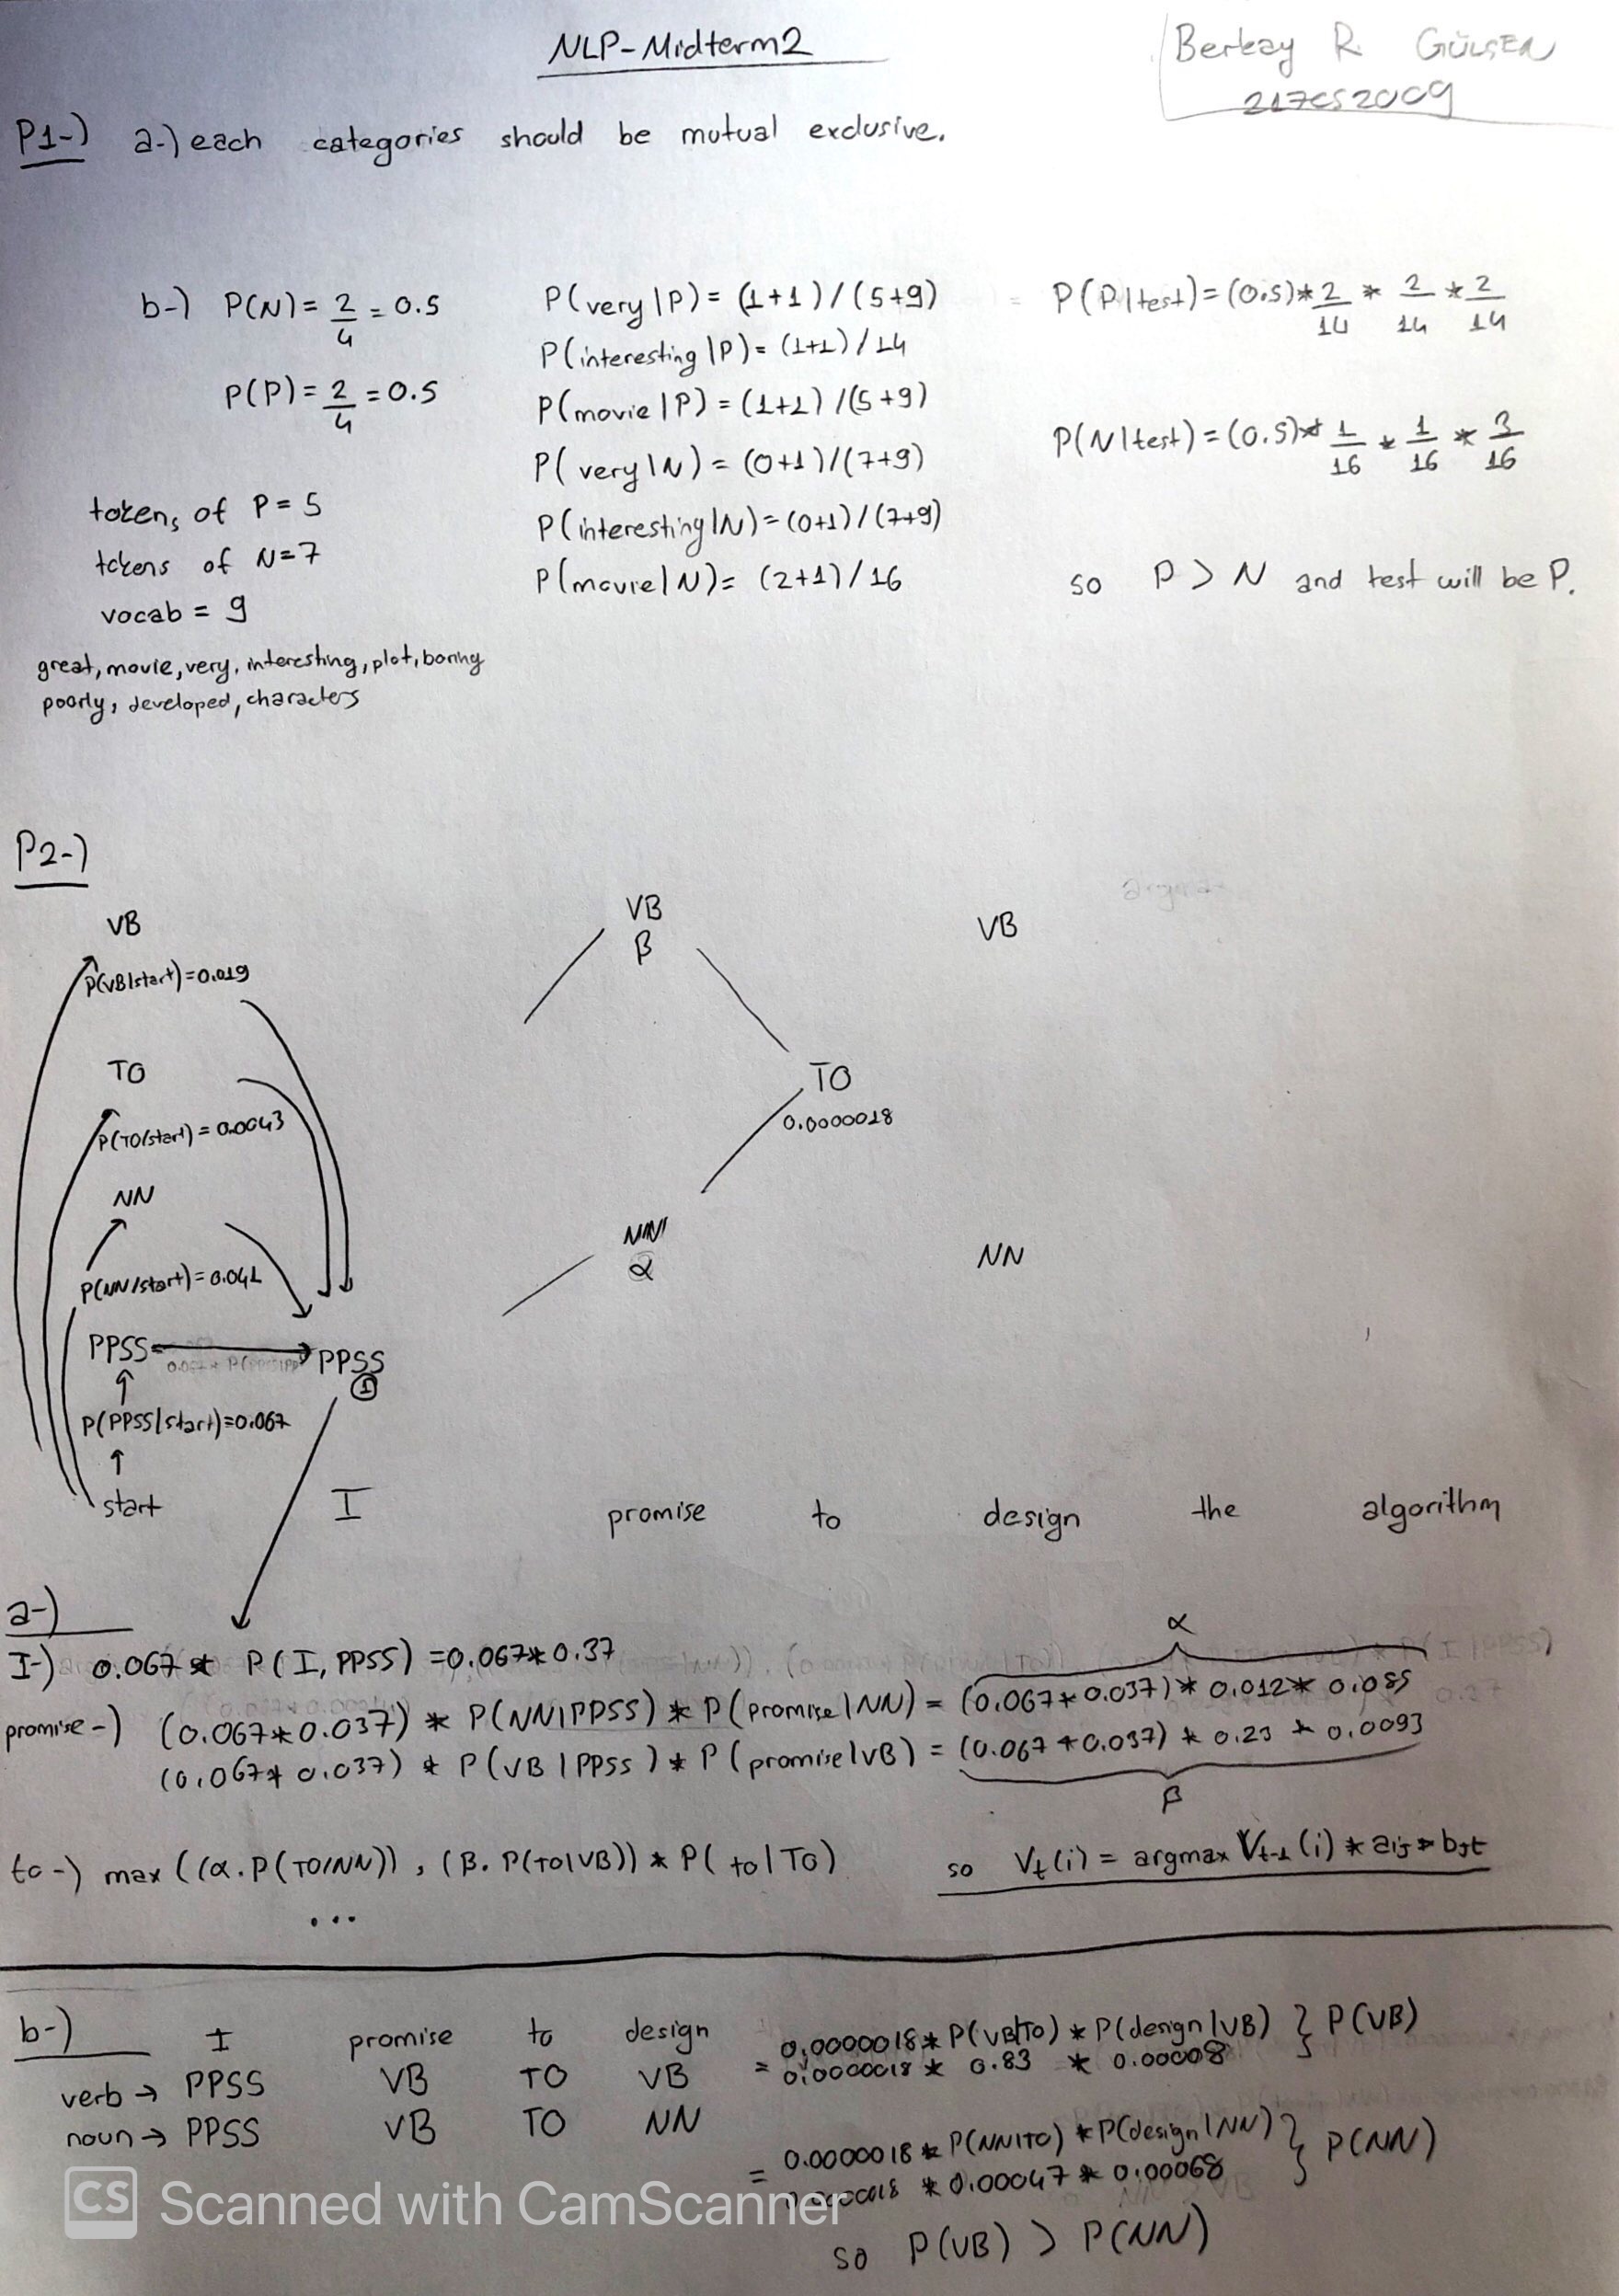 NLP-Midterm2
Berkay R. GÜLŞEN
217CS2009
P1-) a-) each categories should be mutual exclusive.
b-) P(N) = 2/4 = 0.5
P(P) = 2/4 = 0.5
tokens of P = 5
tokens of N=7
vocab = 9
great, movie, very, interesting, plot, boring
poorly, developed, characters
P(very|P) = (1+1)/(5+9)
P(interesting|P) = (1+1)/14
P(movie|P) = (1+1)/(5+9)
P(very|N) = (0+1)/(7+9)
P(interesting|N) = (0+1)/(7+9)
P(movie|N) = (2+1)/16
P(P|test) = (0.5)* 2/14 * 2/14 * 2/14
P(N|test) = (0.5)* 1/16 * 1/16 * 3/16
so P > N and test will be P.
P2-)
VB
P(VB|start)=0.019
TO
P(TO|start) = 0.0043
NN
P(NN|start) = 0.041
PPSS
PPSS
1
P(PPSS|start)=0.067
start
VB
β
VB
TO
0.0000018
NN
α
NN
I promise to design the algorithm
a-)
I-) 0.067 * P(I, PPSS) = 0.067*0.37
α
promise-) (0.067*0.037) * P(NN|PPSS) * P(promise|NN) = (0.067*0.037)* 0.012* 0.085
(0.067* 0.037) * P(VB|PPSS) * P(promise|VB) = (0.067*0.037) * 0.23 * 0.0093
β
to-) max ((α.P(TO|NN)), (β.P(TO|VB)) * P(to|TO) so Vt(i) = argmax Vt-1(i) * aij * bjt
...
b-) I promise to design
verb → PPSS VB TO VB
noun → PPSS VB TO NN
0.0000018* P(VB|TO) * P(design|VB) } P(VB)
= 0.0000018 * 0.83 * 0.00008
0.0000018 * P(NN|TO) * P(design|NN) } P(NN)
= 0.0000018 * 0.00047 * 0.00068
so P(VB) > P(NN)
CS Scanned with CamScanner